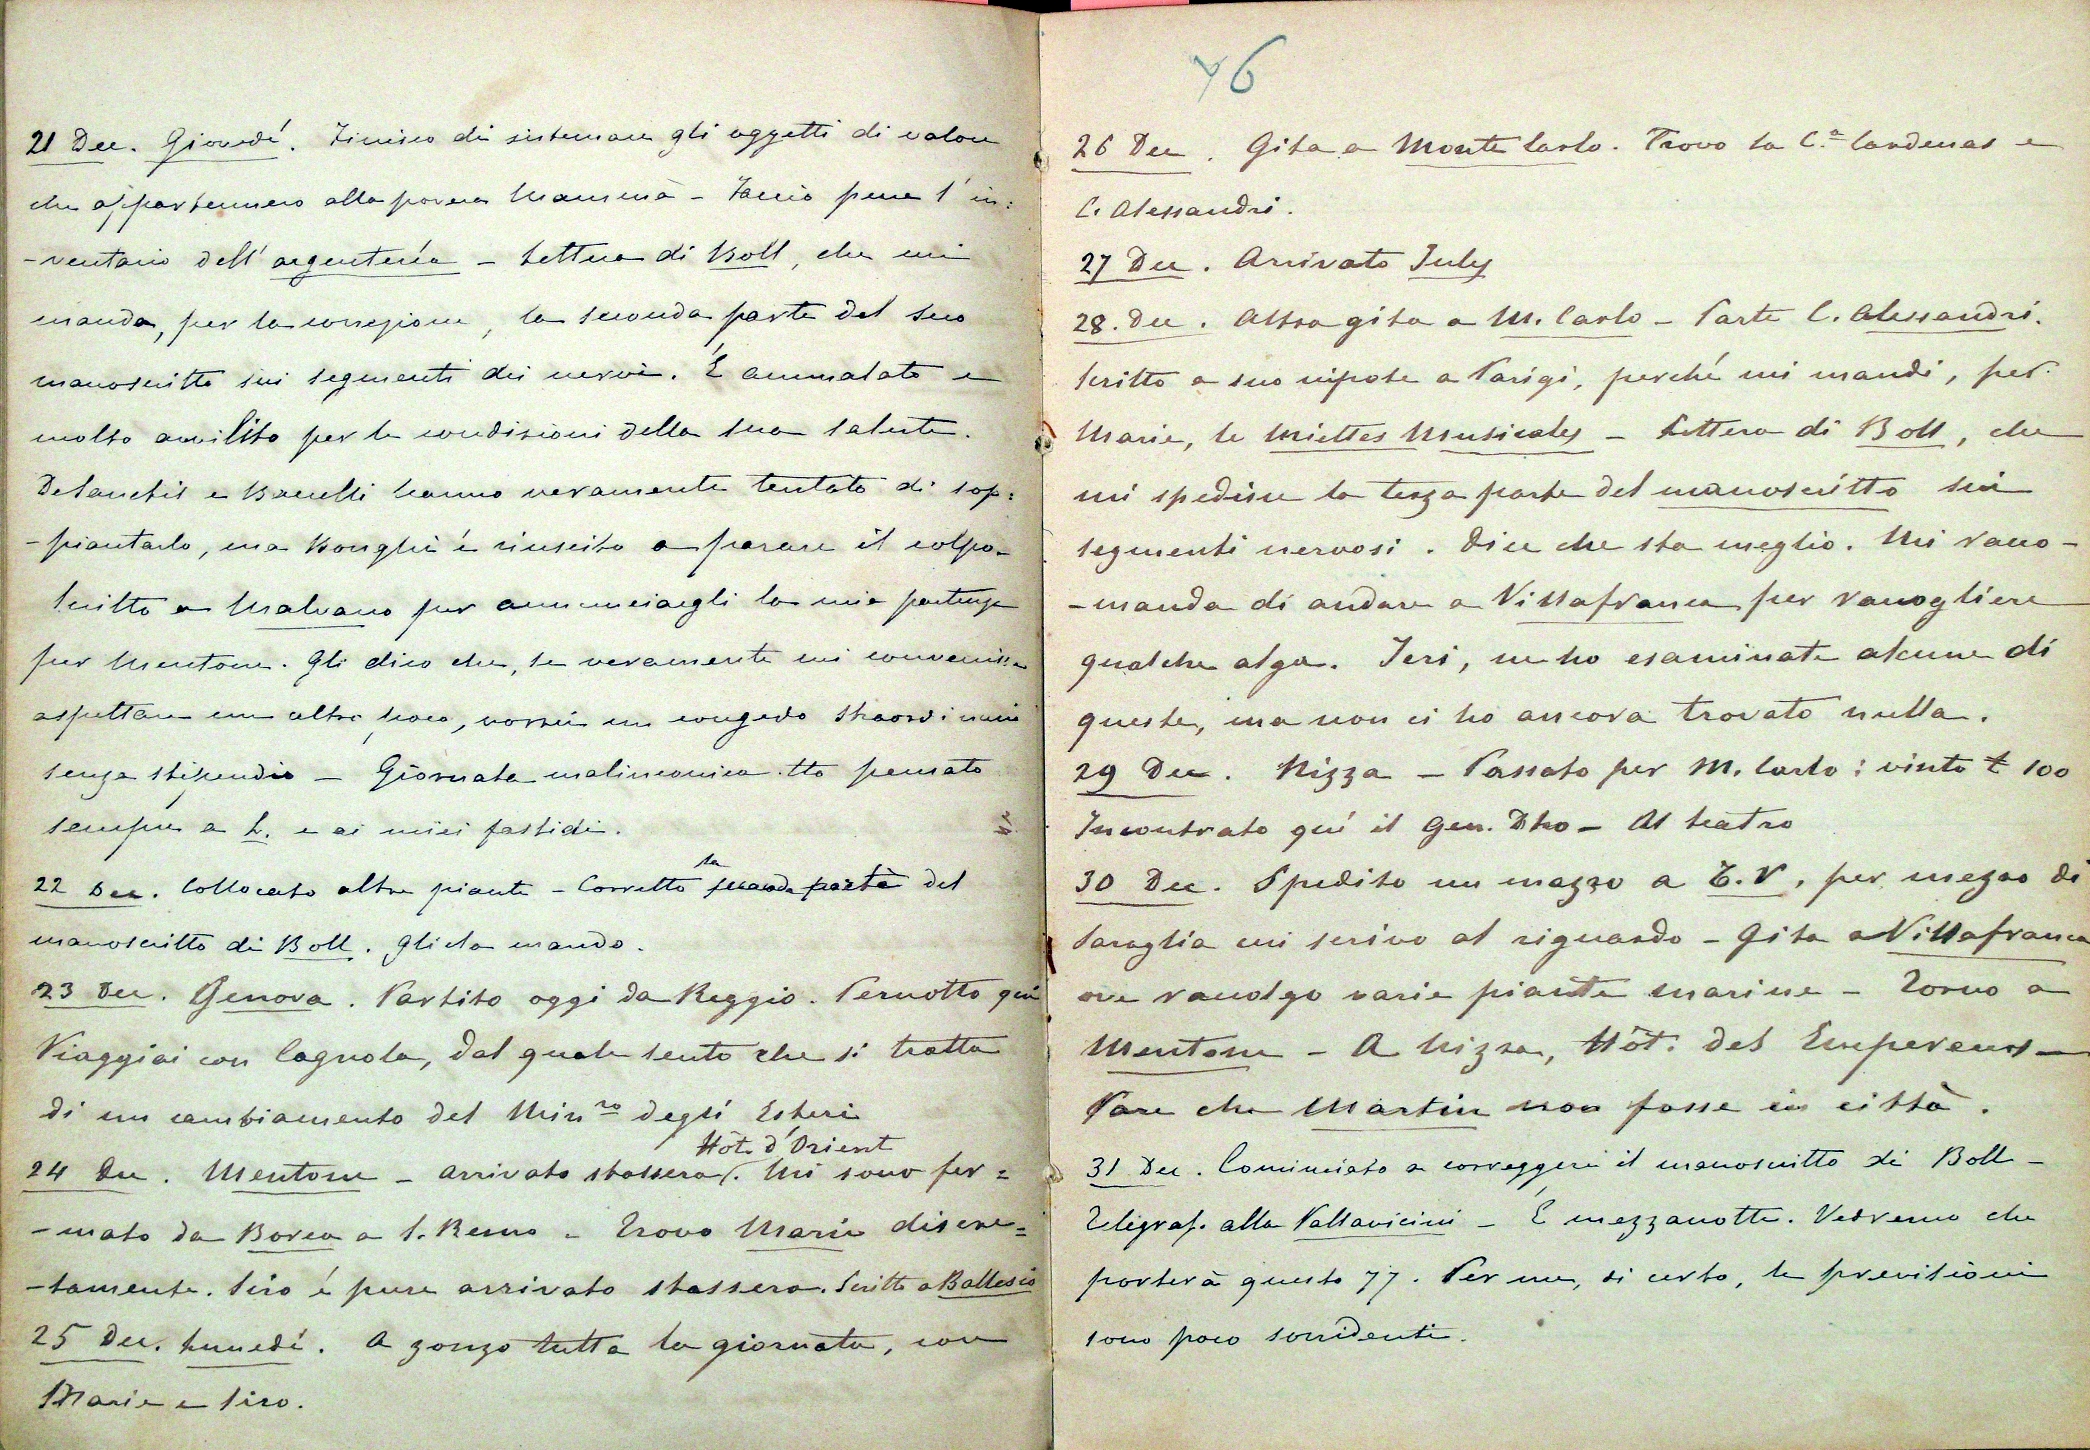 21 Dec. Giovedí. Finisco di sistemare gli oggetti di valore
che appartennero alla povera Mammà - Faccio pure l'in:
-ventario dell'argentería - Lettera di Boll, che mi
manda, per la correzione, la seconda parte del suo
manoscritto sui segmenti dei nervi. É ammalato e
molto avvilito per le condizioni della sua salute.
Desanctis e Baccelli hanno veramente tentato di sop:
-piantarlo, ma Bonghi é riuscito a parare il colpo -
Scritto a Malvano per annunciargli la mia partenza
per Mentone. Gli dico che, se veramente mi convenisse
aspettare un altro poco, vorrei un congedo straordinario
senza stipendio - Giornata malinconica. Ho pensato
sempre a L. e ai miei fastidi.
22 Dec. Collocato altre piante - Corretto la seconda parte del
manoscritto di Boll. Gliela mando.
23 Dec. Genova. Partito oggi da Reggio. Pernotto quí
Viaggiai con Cagnola, dal quale sento che si tratta
di un cambiamento del Minro degli Esteri
Hôt. d'Orient
24 Dec. Mentone - Arrivato stassera. Mi sono fer=
-mato da Borea a S. Remo - Trovo Marie discre=
-tamente. Siro é pure arrivato stassera. Scritto a Ballesio
25 Dec. Lunedí. A zonzo tutta la giornata, con
Marie e Siro.
76
26 Dec. Gita a Monte Carlo. Trovo la C.a Cardenas e
C. Alessandri.
27 Dec. Arrivato July
28. Dec. Altra gita a M. Carlo - Parte C. Alessandri.
Scritto a suo nipote a Parigi, perché mi mandi, per
Marie, le Miettes Musicales - Lettera di Boll, che
mi spedisce la terza parte del manoscritto sui
segmenti nervosi. Dice che sta meglio. Mi racco-
-manda di andare a Villafranca per raccogliere
qualche alga. Ieri, ne ho esaminate alcune di
queste, ma non ci ho ancora trovato nulla.
29 Dec. Nizza - Passato per M. Carlo: vinto £ 100
Incontrato quí il Gen. Dho - Al teatro
30 Dec. Spedito un mazzo a E.V, per mezzo di
Saraglia cui scrivo al riguardo - Gita a Villafranca
ove raccolgo varie piante marine - Torno a
Mentone - A Nizza, Hôt. des Empereurs -
Pare che Martin non fosse in città.
31 Dec. Cominciato a correggere il manoscritto di Boll -
Telegraf. alla Pallavicini - É mezzanotte. Vedremo che
porterà questo 77. Per me, di certo, le previsioni
sono poco sorridenti.